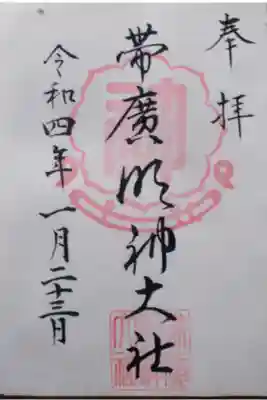 奉拝
帯廣明神大社
令和四年 一月二十三日